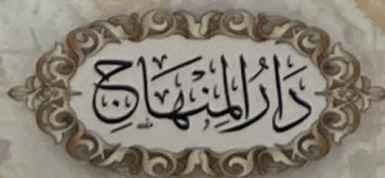 دَارُ المِنْهَاجِ